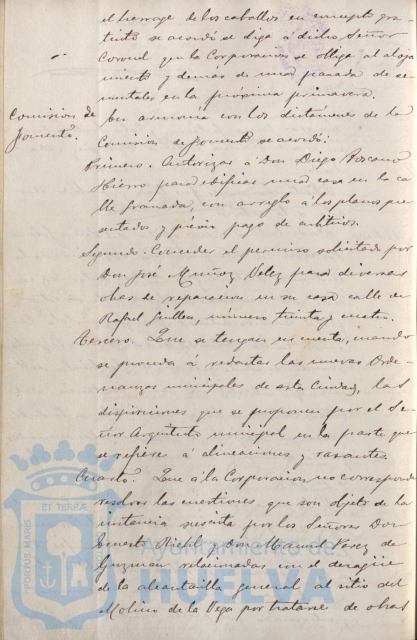 el herrage de los caballos en concepto gra-
tuito se acordó se diga á dicho Señor
Coronel que la Corporacion se obliga al aloja
miento y demas de una parada de se-
mentales en la próxima primavera.
Comision de
Fomento.
En armonia con los dictámenes de la
Comision de Fomento se acordó:
Primero. Autorizar á Don Diego Toscano
Hierro para edificar una casa en la ca-
lle Granada, con arreglo á los planos pre
sentados y prévio pago de arbitrios.
Segundo. Conceder el permiso solicitado por
Don José Muñoz Velez para diversas
obras de reparacion en su casa calle de
Rafael Guillen, número treinta y cuatro.
Tercero. Que se tengan en cuenta, cuando
se proceda á redactar las nuevas Orde-
nanzas municipales de esta Ciudad, las
disposiciones que se proponen por el Se-
ñor Arquitecto municipal en la parte que
se refiere á alineaciones y rasantes.
Cuarto. Que á la Corporacion no corresponde
resolver las cuestiones que son objeto de la
instancia suscrita por los Señores Don
Ernesto y Don Manuel Perez de
Guzman relacionadas con el desagüe
de la alcantarilla general al sitio del
Molino de la Vega por tratarse de obras
PORTUS MARIS ET TERRÆ
Ayuntamiento de
HUELVA